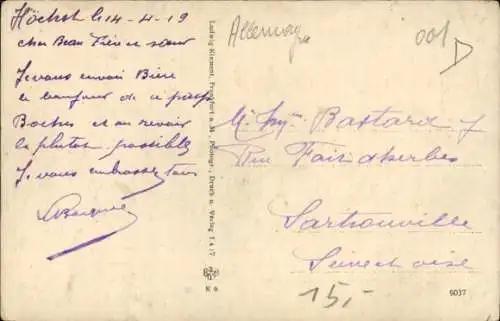 Höchst le 14-4-19
cher Beau Frère et sœur
Je vous envoi Bien
le bonjour de ce pays
Boches et au revoir
le plutot possible
Je vous embrasse tous
Ludwig Klement, Frankfurt a. M. Photogr., Druck u. Verlag
K 6
Allemagne
001 D
Bastard
Rue Faidherbes
Sartrouville
Seine et oise
15,-
5037